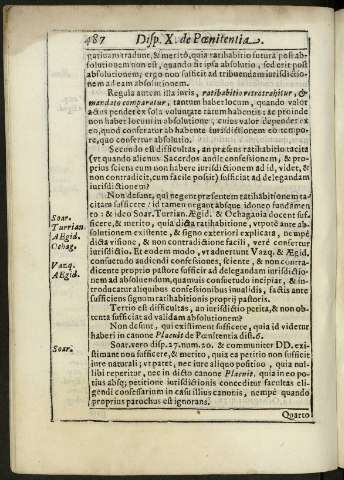 487 Disp. X. de Pœnitentia.
gatiuam tradunt, & meritò, quia ratihabitio futura post ab-
solutionem non est, quando fit ipsa absolutio, sed erit post
absolutionem; ergo non sufficit ad tribuendam iurisdictio-
nem ad eam absolutionem.
Regula autem illa iuris, ratihabitio retrotrahitur, &
mandato comparatur, tantum haber locum, quando valor
actus pender ex sola voluntate ratum habentis: ac proinde
non haber locum in absolutione, cuius valor depender ex
eo, quod conferatur ab habente iurisdictionem eo tempo-
re, quo confertur absolutio.
Secundo est difficultas, an præsens ratihabitio tacita
(vt quando alienus Sacerdos audit confessionem, & pro-
prius sciens eum non habere iurisdictionem ad id, videt, &
non contradicit, cum facile possit) sufficiat ad delegandam
iurisdictionem?
Non desunt, qui negent præsentem ratihabitionem ta-
citam sufficere; id tamen negant absque idoneo fundamen
to: & ideo Soar. Turrian. Ægid. & Ochagania docent suf-
Soar.
Turrian.
AEgid.
Ochag.
ficere, & merito, quia dicta ratihabitio, vtpotè ante ab-
solutionem existente, & signo exteriori explicata, nempè
dicta visione, & non contradictione facili, verè consertur
iurisdictio. Et eodem modo, vt aduertunt Vazq. & Ægid.
Vazq.
AEgid.
consuetudo audiendi confessiones, sciente, & non contra-
dicente proprio pastore sufficit ad delegandam iurisdictio-
nem ad absoluendum, quamuis consuetudo incipiar, & in-
troducatur aliquibus confessionibus inualidis, factis ante
sufficiens signum ratihabitionis proprij pastoris.
Tertio est difficultas, an iurisdictio petita, & non ob-
tenta sufficiat ad validam absolutionem?
Non desunt, qui existiment sufficere, quia id videtur
haberi in canone Placuit de Pœnitentia dist. 6.
Soar. vero disp. 27. num. 20. & communiter DD. exi-
Soar.
stimant non sufficere, & merito, quia ea petitio non sufficit
iure naturali; vt patet, nec iure aliquo positiuo, quia nul-
libi reperitur, nec in dicto canone Placuit, quia in eo po-
tius absq; petitione iurisdictionis conceditur facultas eli-
gendi confessarium in casu illius canonis, nempè quando
proprius parochus est ignorans.
Quarto